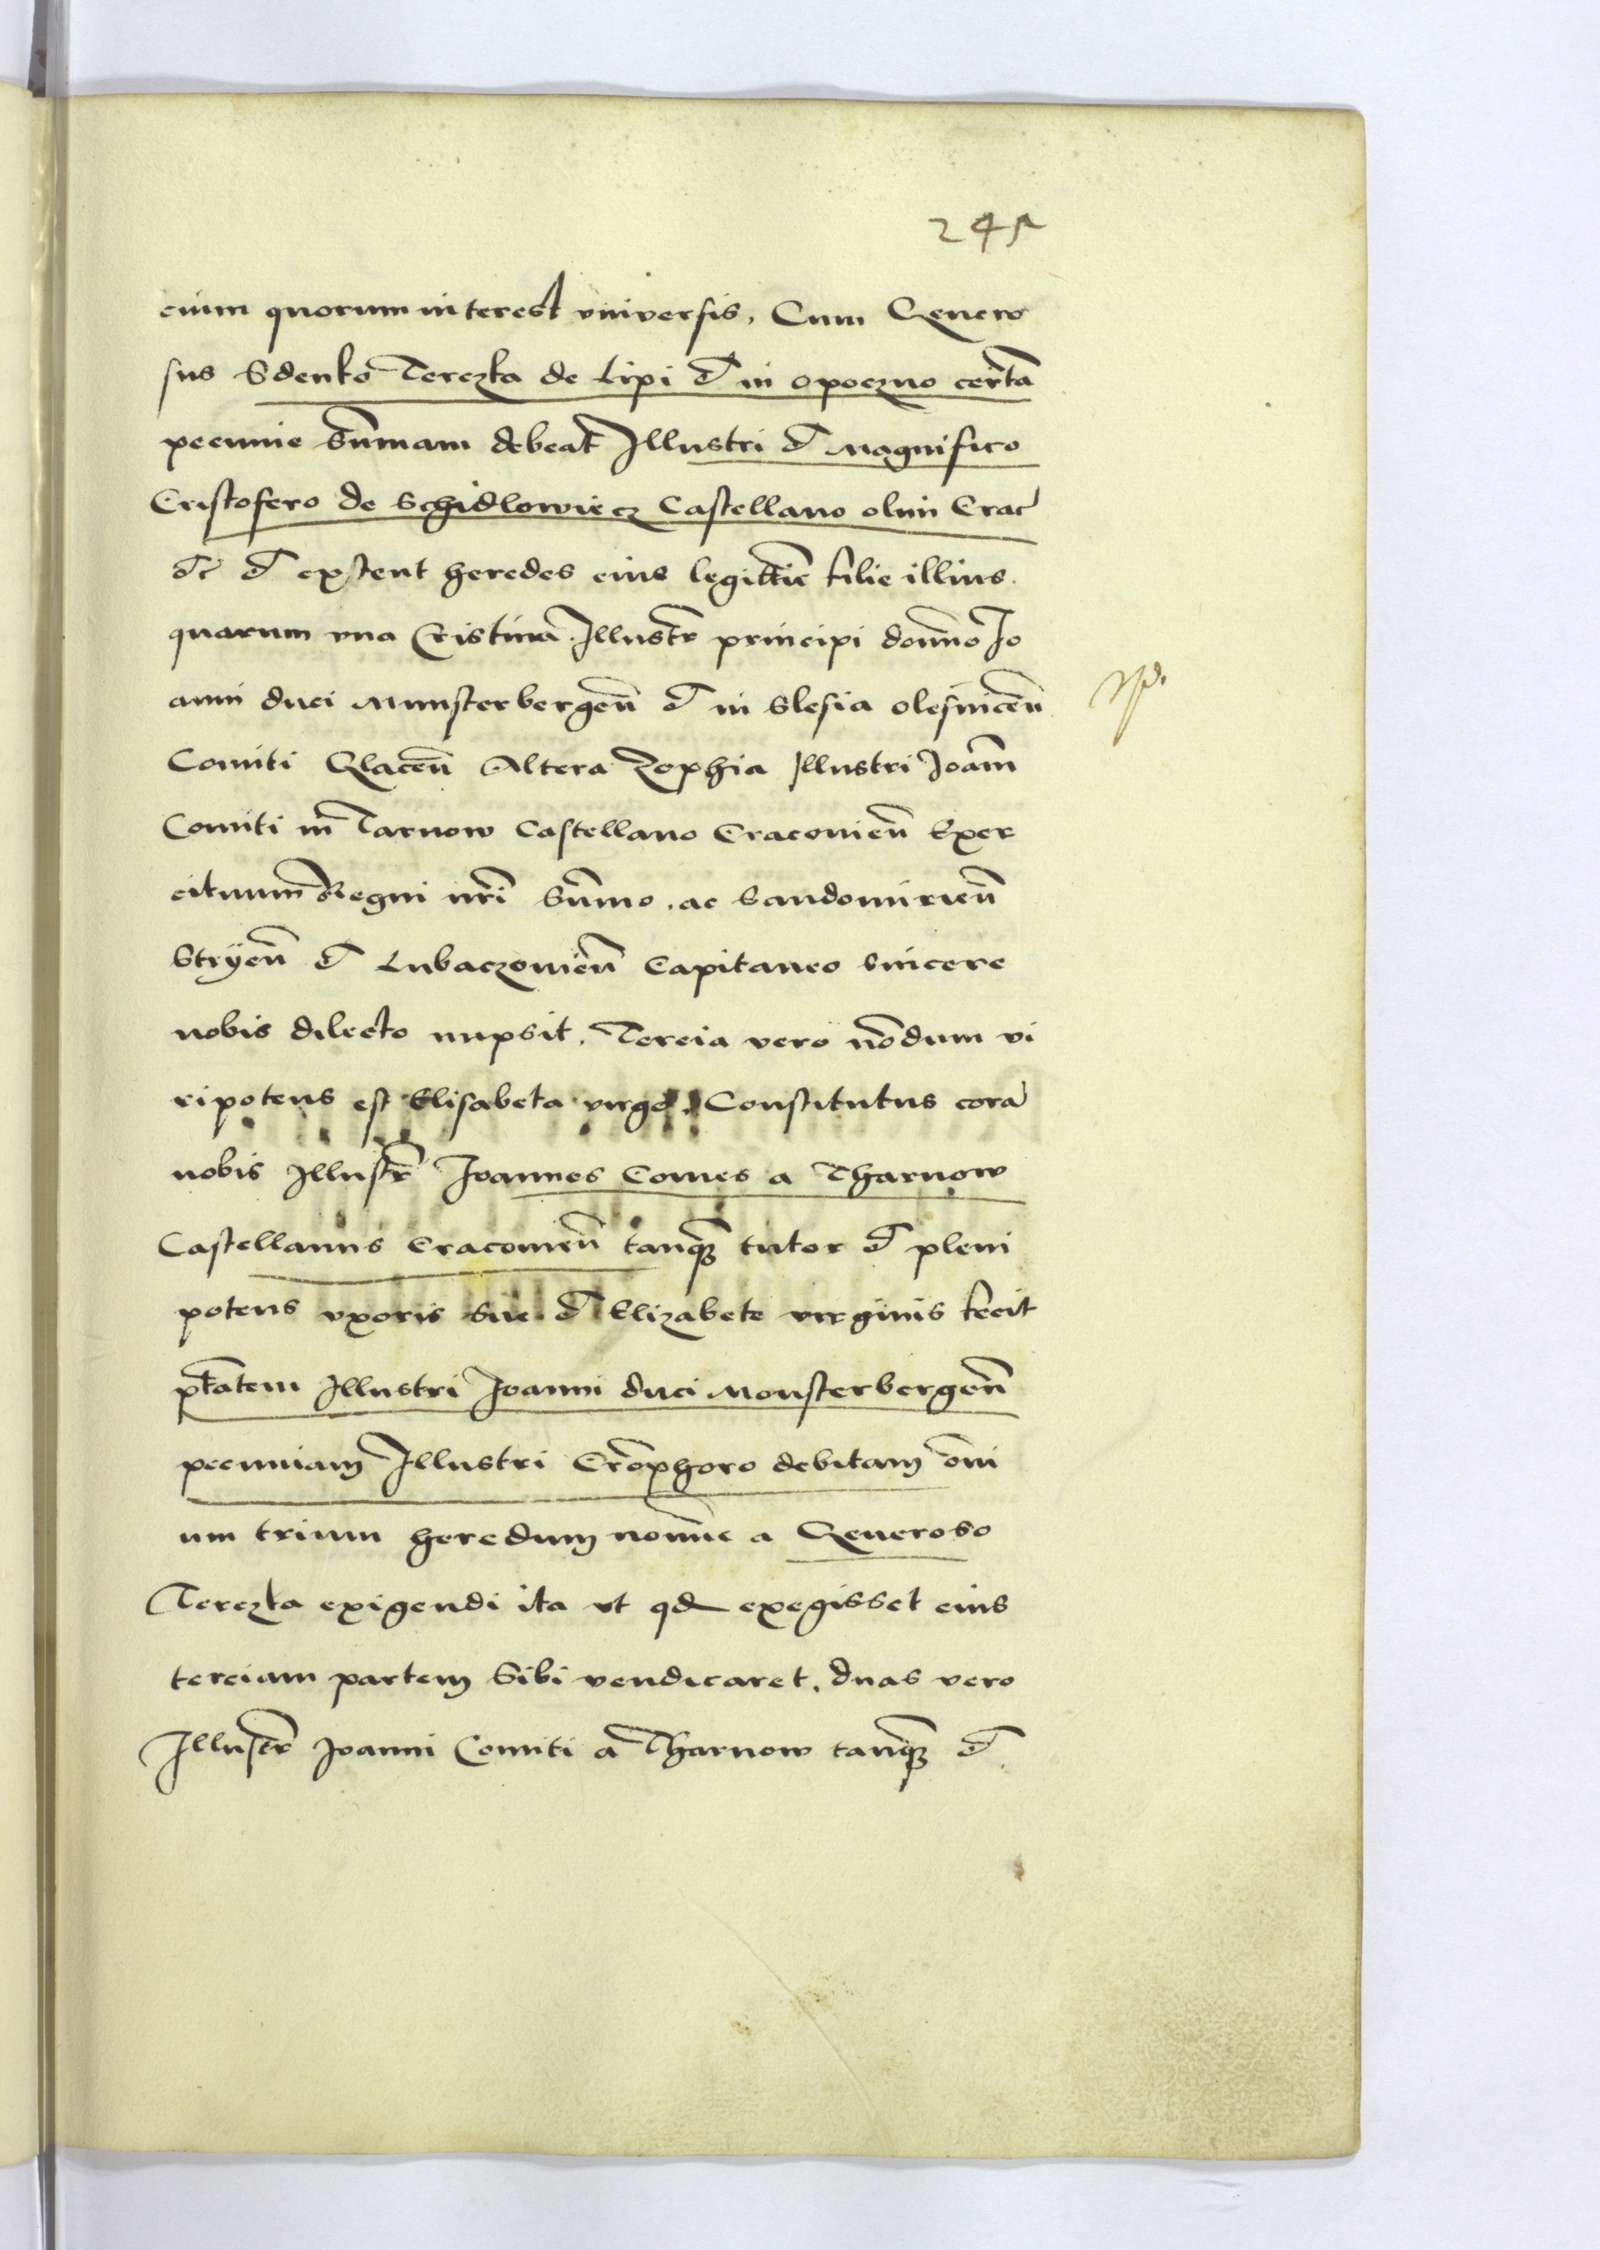 245
cium quorum interest vniversis, Cum Genero
sus Sdenko Terczka de Lipi et in opoczno certã
pecunie Sũmam debeat Illustri et Magnifico
Cristofero de Schidlowiecz Castellano olim Crac
etc et extent heredes eius legittiē filie illius.
quarum vna Cristina Illustr̃ principi domno Jo
anni duci Munsterbergeñ et in Slesia olesniceñ
Comiti Glaceñ Altera Zophia Illustri Joañi
Comiti in Tarnow Castellano Cracovieñ Exer
cituum Regni nr̃i Sũmo, ac Sandomirieñ
Stryeñ et Lubaczovieñ Capitaneo Sincere
nobis dilecto nupsit. Tercia vero nõdum vi
ripotens est Elisabeta virgo. Constitutus corã
nobis Illustr̃ Joannes Comes a Tharnow
Castellanus Cracovieñ tanq̃ tutor et pleni
potens vxoris Sue. et Elizabete virginis fecit
ptãtem Illustri Joanni duci Monsterbergeñ
pecuniam Illustri Crõphoro debitam õni
um trium heredum nomĩe a Generoso
Terczka exigendi ita vt qd exegisset eius
terciam partem Sibi vendicaret. duas vero
Illustr̃ Joanni Comiti a Tharnow tanq̃ et